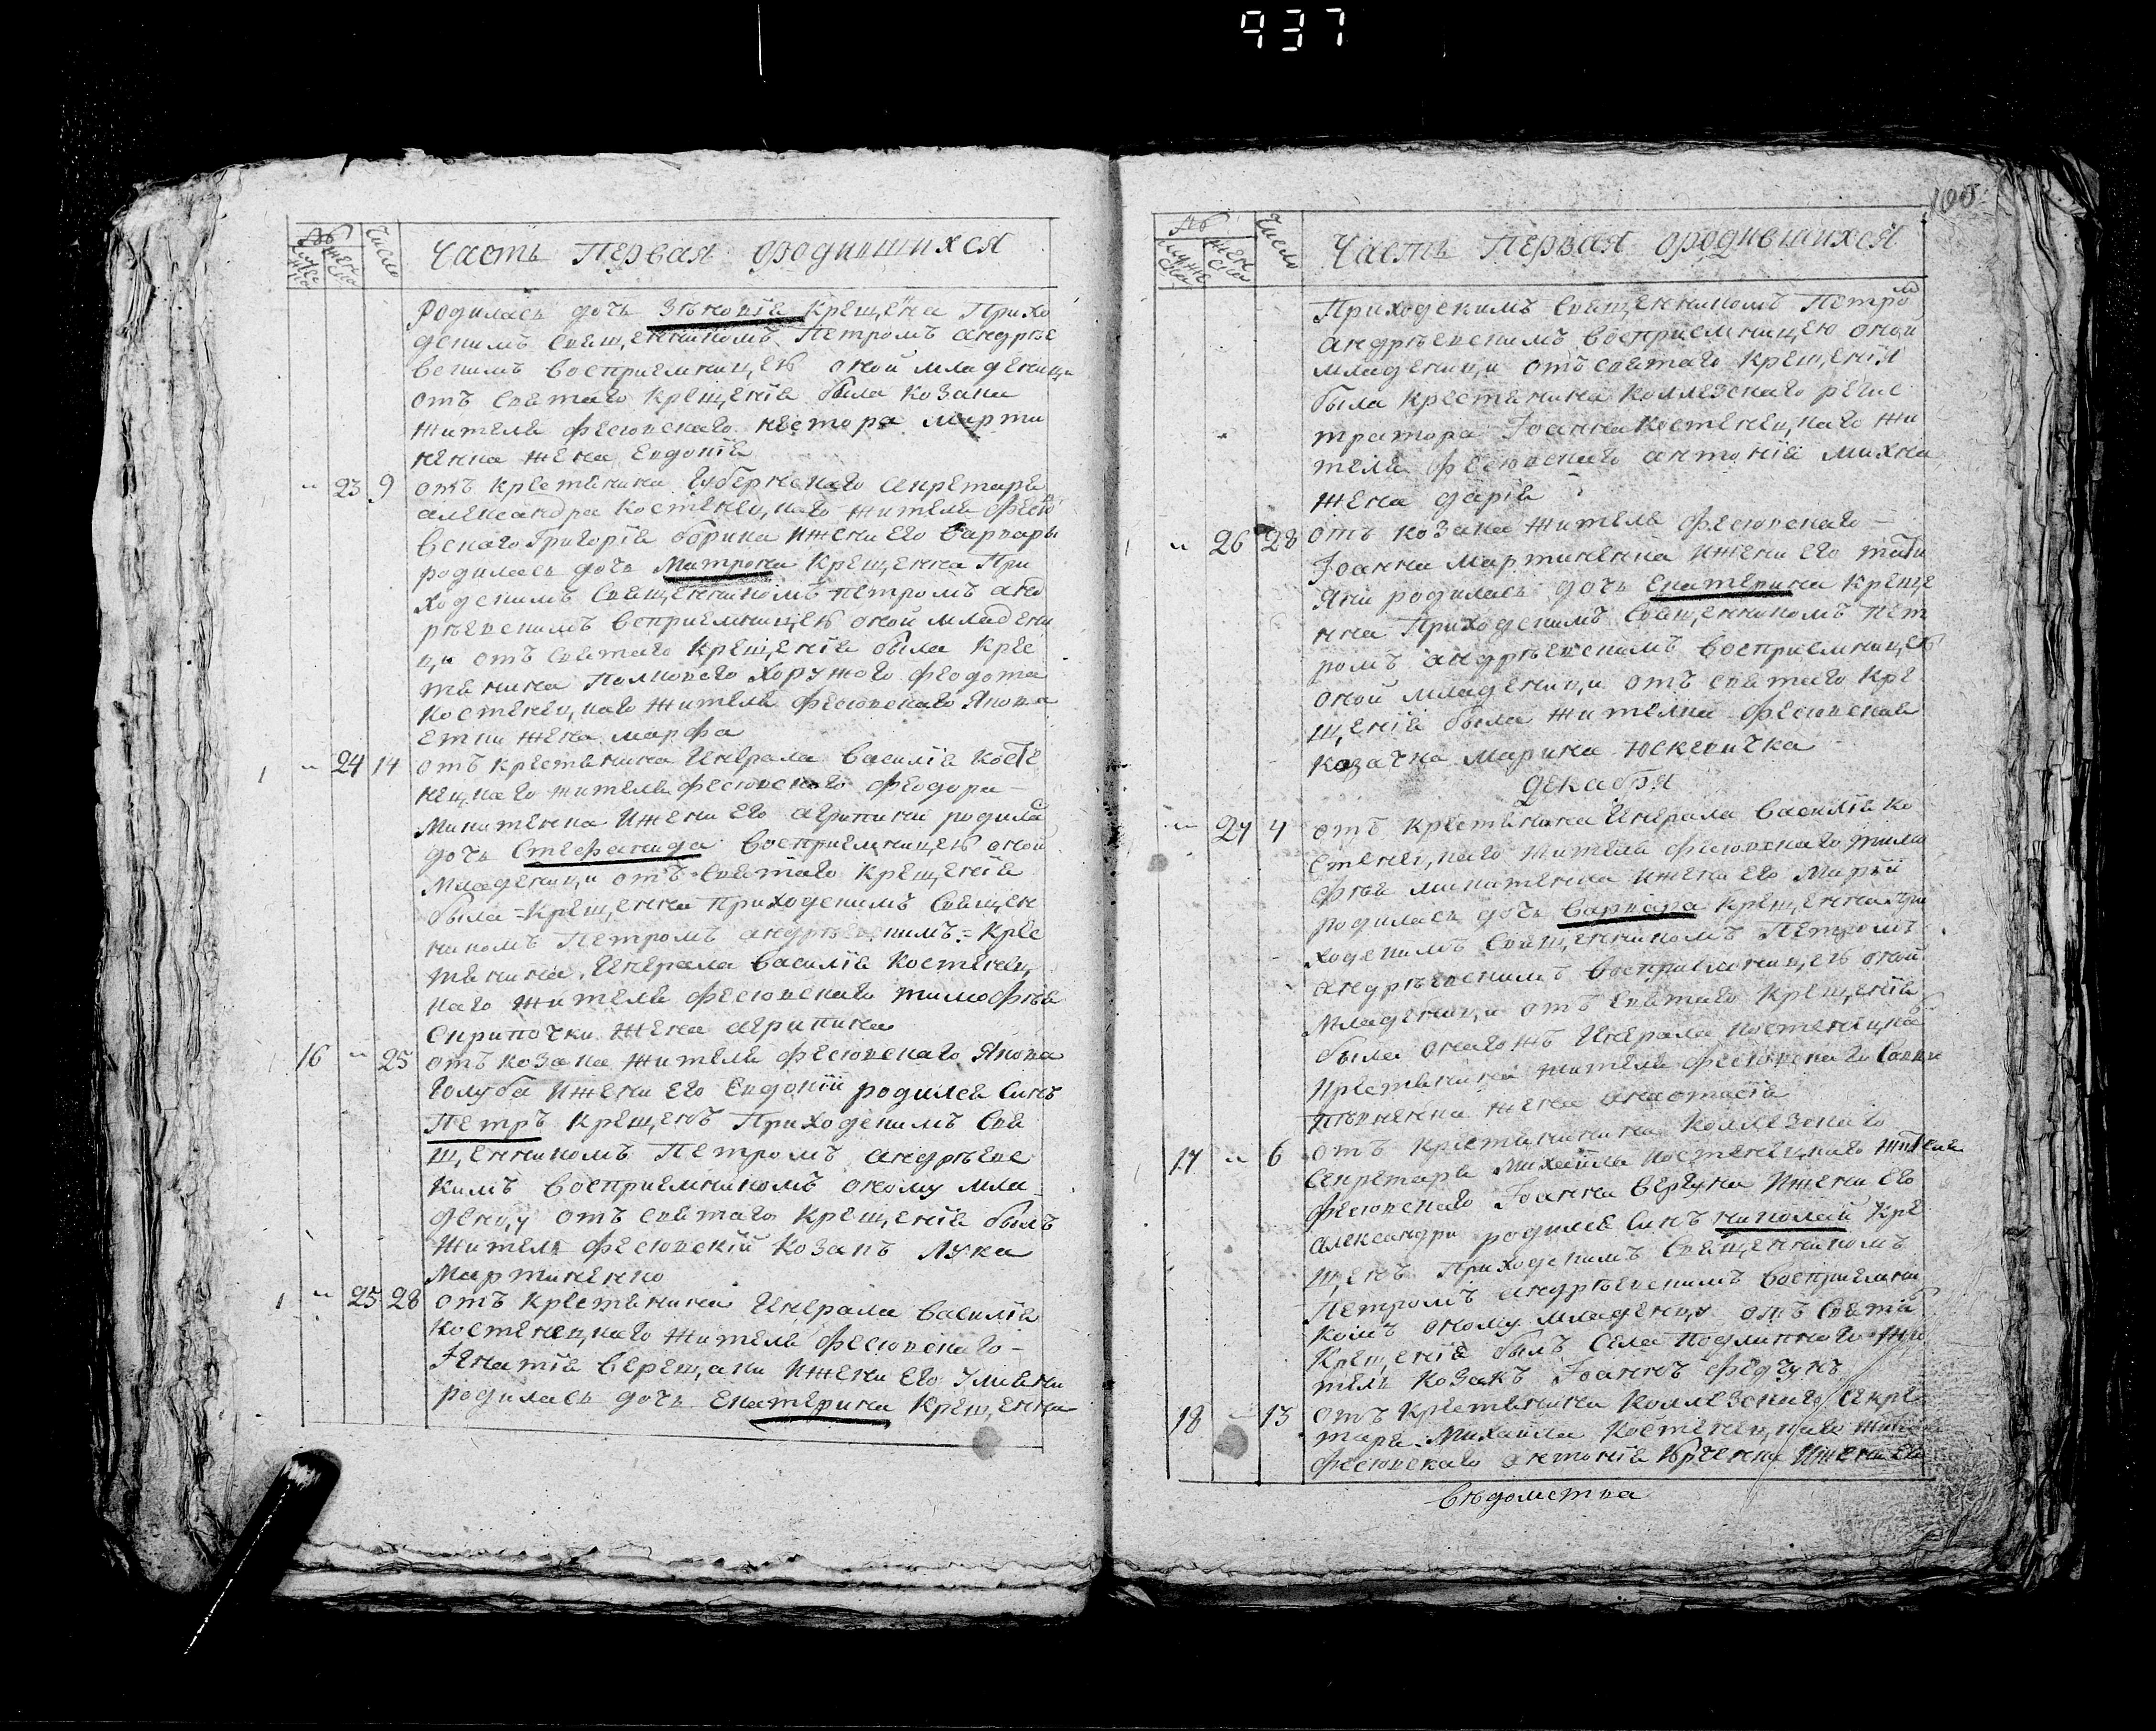 937
100
№ Число Часть Первая ородившихся
мужеска женска
Родилась дочь Зѣновія крещена Прихо
дскимъ Священникомъ Петромъ Андрѣе
вскимъ восприемницею оной младеницы
отъ святаго крещенія была козака
жителя фесювскаго нестора марти
ненка жена Евдокія
" 23 9 отъ крестянина Губернскаго Секретаря
александра костенецкаго жителя фесю
вскаго Григорія и жени его варвары
родилась дочь Матрона крещенна При
ходскимъ Священникомъ петромъ анд
рѣевскимъ восприемницею оной младени
ци отъ святаго крещенія была крес
тянина Полковаго хоружого феодота
костенецкаго жителя фесювскаго Якова
жена марфа
1 " 24 14 отъ крестянина Генерала василія косте
нецкаго жителя фесювскаго феодора
Микитенка и жени его агрипини родилас
дочь Стефанида восприемницею оной
младеници отъ святаго крещенія
была = крещенна приходскимъ Священ
никомъ Петромъ андрѣевскимъ = крес
тянина Генерала василія костенец
каго жителя фесювскаго тимофѣя
Скрипочки жена агрипина
16 " 25 отъ козака жителя фесювскаго Якова
Голуба и жени его Евдокіи родился синъ
Петръ крещенъ Приходскимъ Свя
щенникомъ Петромъ андрѣевс
кимъ восприемникомъ оному мла
денцу отъ святаго крещенія былъ
житель фесювскій козакъ Лука
Мартиненко
1 " 25 28 отъ крестянина Генерала василія
костенецкаго жителя фесювскаго
Игнатія верещаки и жени его Уліяни
родилась дочь Екатерина крещенна
№ Число Часть Первая ородившихся
мужеска женска
Приходскимъ Священникомъ Петромъ
андрѣевскимъ восприемницею оной
младеници отъ святаго крещенія
была крестянина коллезскаго регис
тратора Іоанна костенецкаго жи
теля фесювскаго антонія михна
жена дарія
1 " 26 28 отъ козака жителя фесювскаго
Іоанна мартиненка и жени его тати
яни родилась дочь Екатерина креще
нна Приходскимъ Священникомъ пет
ромъ андрѣевскимъ восприемницею
оной младеници отъ святаго кре
щенія была жителка фесювская
козачка марина юскевичка
декабря
" 27 4 отъ крестянина Генерала василія ко
стенецкаго жителя фесювскаго тимо
фѣя микитенка и жени его маріи
родилась дочь варвара крещенна При
ходскимъ Священникомъ Петромъ
андрѣевскимъ восприемницею оной
младеници отъ святаго крещенія
была онагожъ Генерала костенецкаго
крестянина жителя фесювскаго
жена анастасія
17 " 6 отъ крестянина коллезскаго
Секретаря михаила костенецкаго жителя
фесювскаго Іоанна вергуна и жени его
александри родился синъ николай кре
щенъ Приходскимъ Священникомъ
Петромъ андрѣевскимъ восприемни
комъ оному младенцу отъ святаго
крещенія былъ села подлипного жи
тель козакъ Іоаннъ федчунъ
18 " 13 отъ крестянина коллезскаго Секре
таря Михаила костенецкаго жителя
фесювскаго антонія и жени его
вѣдомства